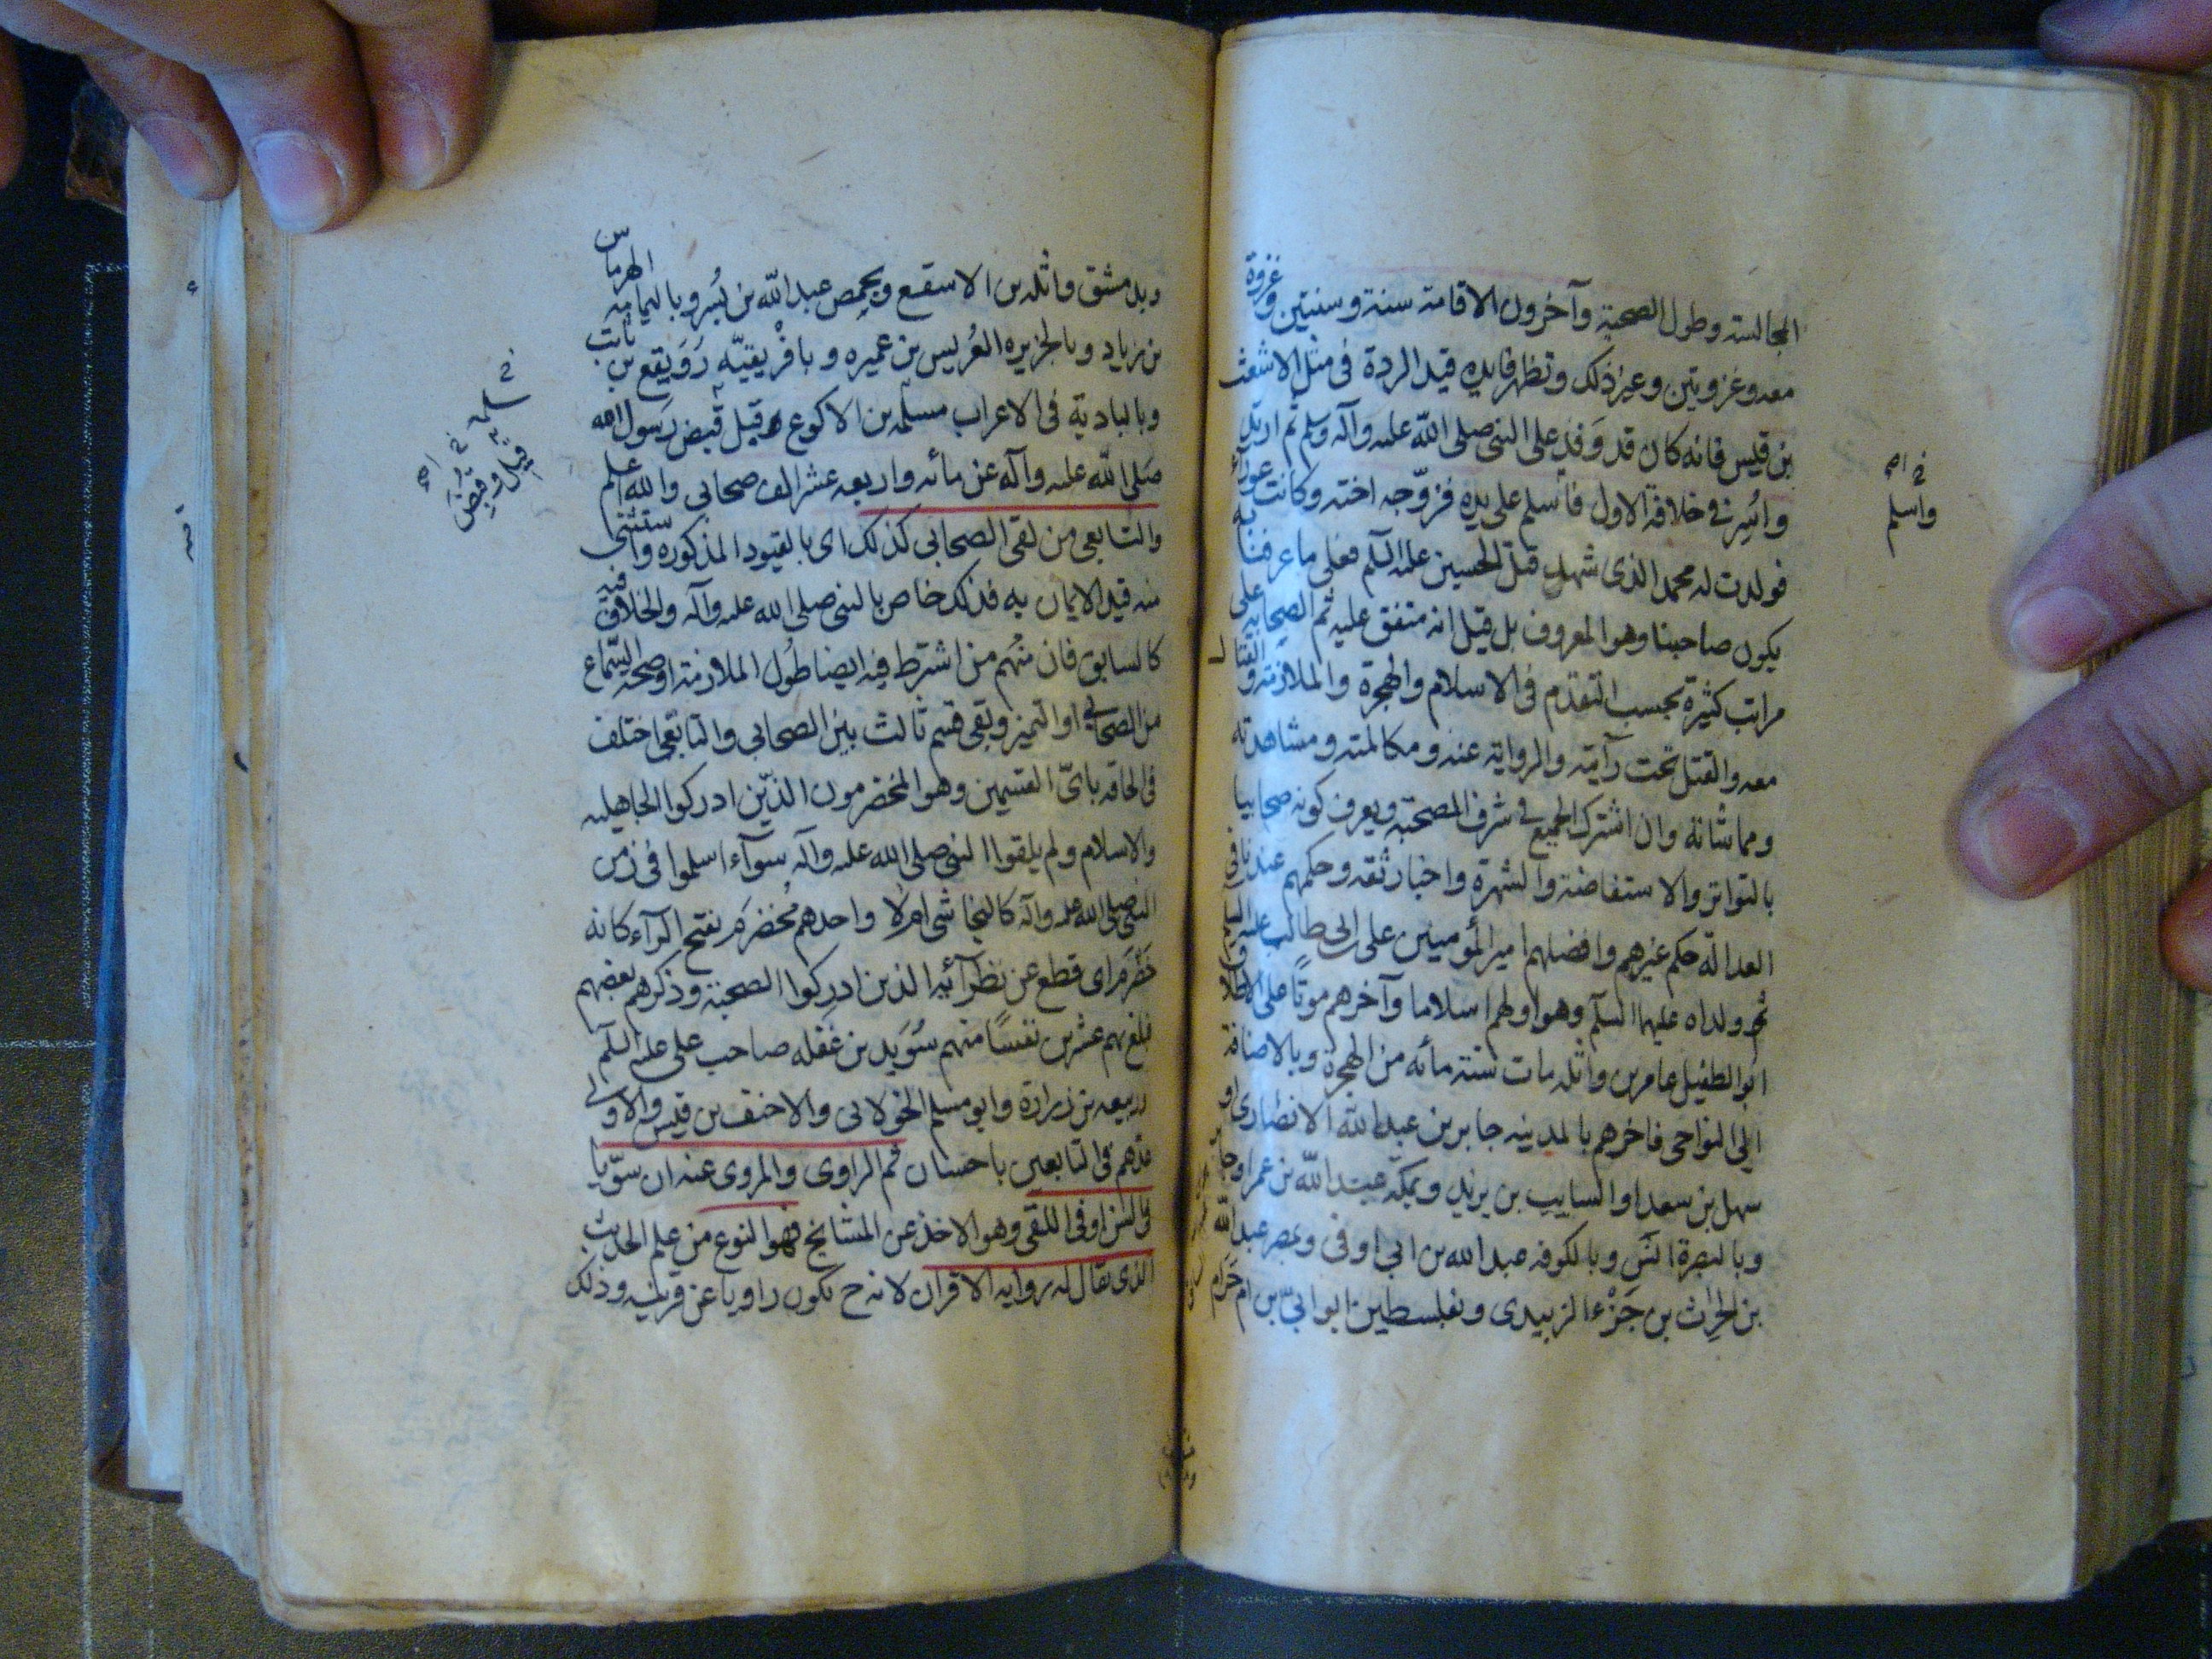 المجالسة وطول الصحبة وآخرون الاقامة سنة وسنتين وغزوة
معه وغزوتين وغير ذلك وتظهر فايده قيد الردة فى مثل الاشعث
بن قيس فانه كان قد وَفد على النبى صلى الله عليه وآله وسلم ثم ارتد
وائسِر فى خلافة الاول فاسلم على يده فزوّجه اخته وكانت عورآء
فولدت له محمد الذى شهد قتل الحسين عليه السلم فعلى ما عرفنا به
يكون صاحبنا وهو المعروف بل قيل انه متفق عليه ثم الصحابة على
مراتب كثيرة بحسب التقدم فى الاسلام والهجرة والملازمة والقتال
معه والقتل تحت رآيته والرواية عنه ومكالمته ومشاهدته
ومماشاته وان اشترك الجميع فى شرف الصحبة ويعرف كونه صحابيا
بالتواتر والاستفاضة والشهرة واخبار ثقه وحكمهم عندنا فى
العدالة حكم غيرهم وافضلهم امير المؤمنين على بن ابى طالب عليه السلم
ثم ولداه عليهما السلم وهو اولهم اسلاما وآخرهم موتًا على الاطلاق
ابو الطفيل عامر بن واثله مات سنة مائه من الهجرة وبالاضافة
الى النواحى فاخرهم بالمدينه جابر بن عبد الله الانصارى او
سهل بن سعد او السايب بن يزيد وبمكّه عبد الله بن عمر او جابر
وبالبصرة انس وبالكوفه عبد الله بن ابى اوفى وبمصر عبد الله
بن الحرث بن جَزْء الزبيدى وبفلسطين ابو ابىّ بن ام حَرام
واسلم
وبدمشق واثله بن الاسقع وبحمص عبد الله بن بُسر وباليمامه الهرماس
بن زياد وبالجزيره العُريس بن عميره وبافْريقيّه رَوَيقع بن ثابت
وبالبادية فى الاعراب مسلمه بن الاكوع قيل قبض رسول الله
صَلى الله عليه وآله عن مأئه واربعه عشر الف صحابى والله اعلم
والتابعى من لقى الصحابى كذلك اى بالقيود المذكوره واستثنى
منه قيد الايمان به فذلك خاص بالنبى صلى الله عليه وآله والخلاف فيه
كالسابق فان منهم من اشترط فيه ايضا طُول الملازمة او صحه السّماع
من الصحابى او التميز وبقى قسم ثالث بين الصحابى والتابعى اختلف
فى الحاقه باىّ القسمين وهو المخضرمون الذين ادركوا الجاهليه
والاسلام ولم يلقوا النبى صلى الله عليه وآله سوآء اسلموا فى زمن
النبى صلى الله عليه وآله كالنجاشى ام لا واحدهم مُخضرَم بفتح الرآء كانه
خضرم اى قطع عن نظرآئه الذين ادركوا الصحبة وذكرهم بعضهم
فبلغ بهم عشرين نفسًا منهم سُوَيد بن غفله صاحب على عليه السلم
وربيعه بن زرارة وابو مسلم الخولانى والاحنف بن قيس والاولى
عدّهم فى التابعين باحسان ثم الراوى والمروى عنه ان سوّيا
فى السن او فى اللقى وهو الاخذ عن المشايخ فهو النوع من علم الحديث
الذى يقال له روايه الاقران لانه ح يكون راويا عن قرينه وذلك
سلمه
قيل وقبض